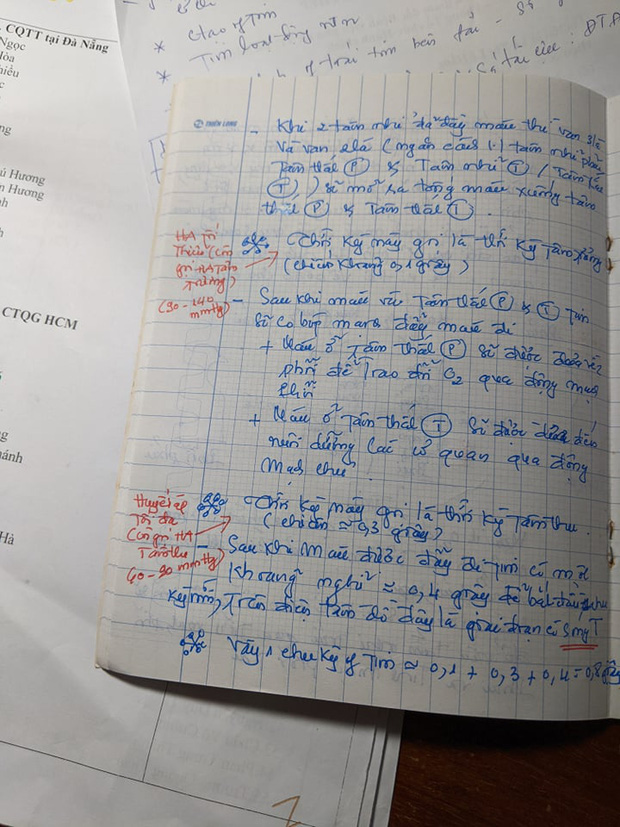 CQTT tại Đà Nẵng
Ngọc
Hòa
hiều
ng
ú Hương
n Hương
nh
h
CTQG HCM
ng
hánh
Hà
* Tim
*
THIÊN LONG
- Khi 2 tâm nhĩ đã đầy máu thì van 3 lá
và van 2 lá (ngăn cách tâm nhĩ phải
Tâm thất (P) & Tâm nhĩ (T) / Tâm thất
(T)) sẽ mở ra tống máu xuống tâm
thất (P) & Tâm thất (T).
Thời kỳ này gọi là thời kỳ Tâm trương
(chiếm khoảng 0,1 giây)
HA tối
thiểu (còn
gọi HA Tâm
trương)
(90-140
mmHg)
- Sau khi máu về Tâm thất (P) & (T) Tim
sẽ co bóp mạnh đẩy máu đi
+ Máu ở Tâm thất (P) sẽ được đưa về
phổi để Trao đổi O2 qua động mạch
phổi
+ Máu ở Tâm thất (T) sẽ được đưa đến
nuôi dưỡng các cơ quan qua động
mạch chủ.
Thời kỳ này gọi là thời kỳ Tâm thu.
(chiếm ≈ 0,3 giây)
Huyết áp
Tối đa
Còn gọi HA
Tâm thu
60-90 mmHg)
- Sau khi Máu được đẩy đi tim có một
khoảng nghỉ ≈ 0,4 giây để bắt đầu chu
kỳ mới, Trên điện tâm đồ đây là giai đoạn có sóng T
Vậy 1 chu kỳ Tim ≈ 0,1 + 0,3 + 0,4 = 0,8 giây